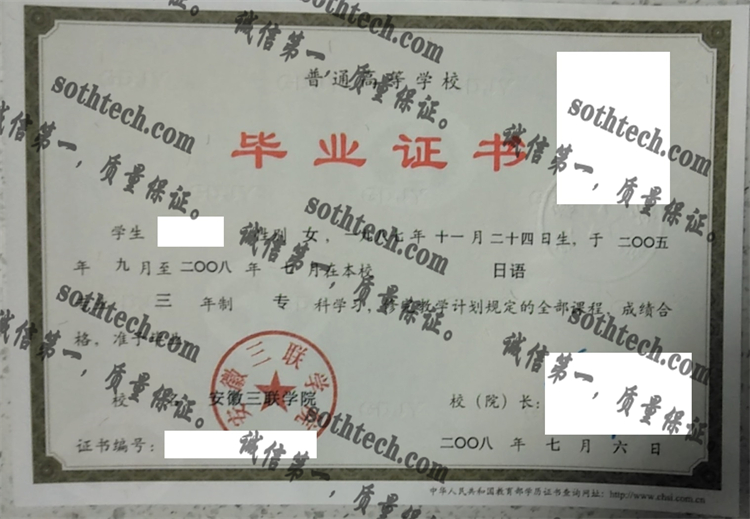 普通高等学校
毕业证书
学生 性别 女，一九八七年 十一月二十四日生，于 二〇〇五
年 九 月至 二〇〇八 年 七 月在本校 日语
三 年制 专 科学习，教学计划规定的全部课程，成绩合
格，准予毕业
校 安徽三联学院 校（院）长：
证书编号： 二〇〇八 年 七 月 六 日
安徽三联学院
中华人民共和国教育部学历证书查询网址：http://www.chsi.com.cn
sothtech.com
诚信第一，质量保证。
sothtech.com
诚信第一，质量保证。
sothtech.com
诚信第一，质量保证。
sothtech.com
诚信第一，质量保证。
sothtech.com
诚信第一，质量保证。
sothtech.com
诚信第一，质量保证。
sothtech.com
诚信第一，质量保证。